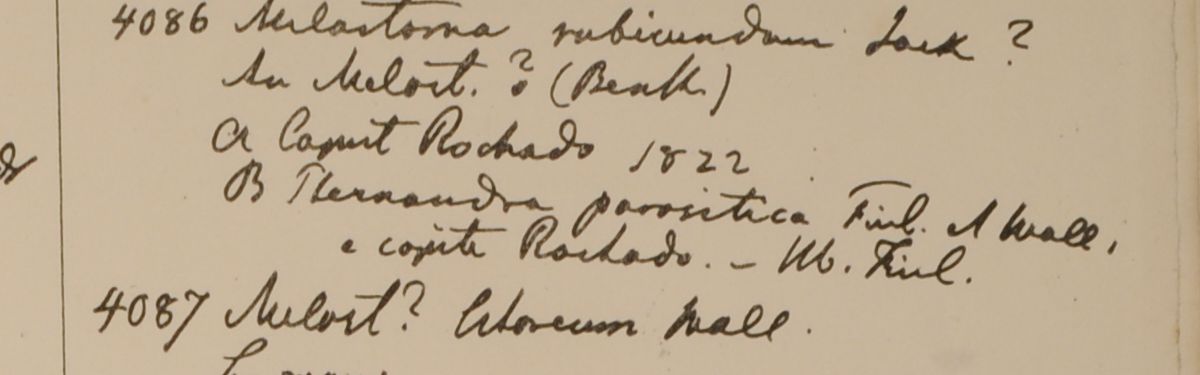 4086 Melastoma rubicundum Jack ?
An Melast. ? (Benth.)
A Caput Rochado 1822
B Pternandra parasitica Finl. et Wall.
e capite Rochado. - Hb. Finl.
4087 Melast? arboreum Wall.